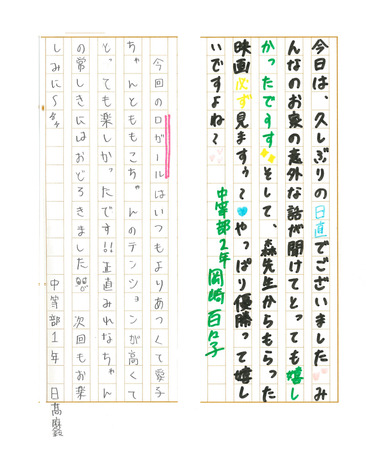 今日は、久しぶりの日直でございました♡♡み
んなのお家の意外な話が聞けてとっても嬉し
かったですす そして、森先生からもらった
映画必ず見ますぅ〜♥やっぱり優勝って嬉し
いですよね〜♡
中等部2年 岡崎 百々子
今回のロガールはいつもよりあつくて愛子
ちゃんとももこちゃんのテンションが高くて
とっても楽しかったです!!正直みれなちゃん
の常しきにはおどろきました 次回もお楽
しみに〜
中等部1年 日髙麻鈴